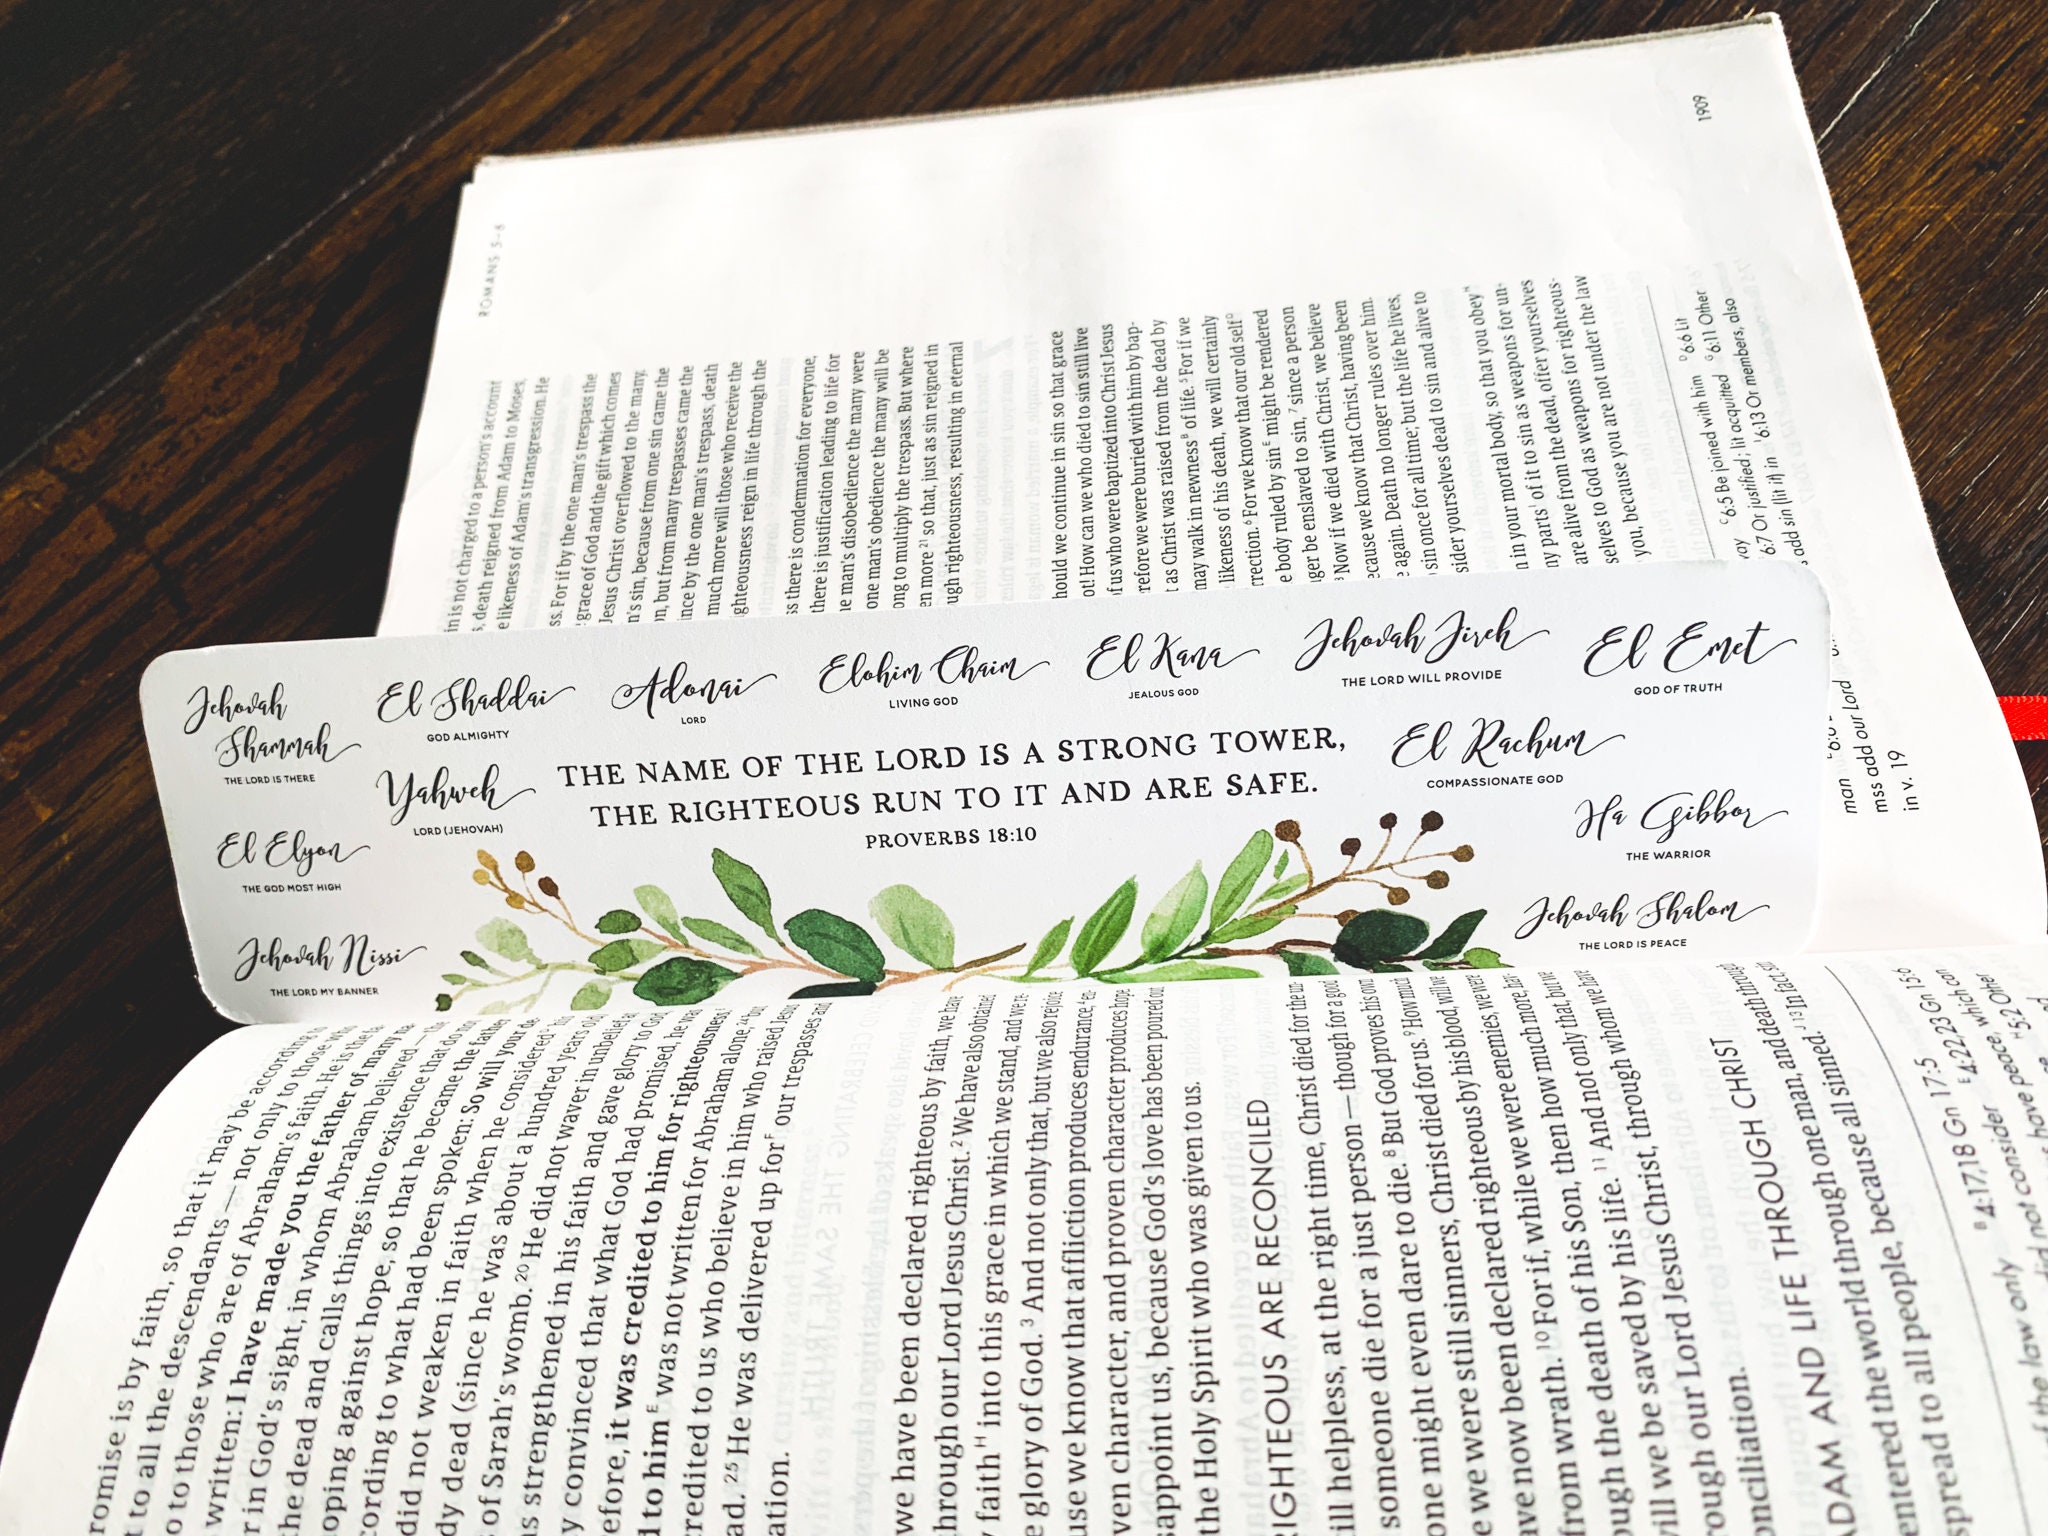 Jehovah
Shammah
THE LORD IS THERE
El Shaddai
GOD ALMIGHTY
Adonai
LORD
Elohim Chaim
LIVING GOD
El Kana
JEALOUS GOD
Jehovah Jireh
THE LORD WILL PROVIDE
El Emet
GOD OF TRUTH
Yahweh
LORD (JEHOVAH)
THE NAME OF THE LORD IS A STRONG TOWER,
THE RIGHTEOUS RUN TO IT AND ARE SAFE.
PROVERBS 18:10
El Rachum
COMPASSIONATE GOD
Ha Gibbor
THE WARRIOR
El Elyon
THE GOD MOST HIGH
Jehovah Nissi
THE LORD MY BANNER
Jehovah Shalom
THE LORD IS PEACE
1909
is not charged to a person's account
death reigned from Adam to Moses,
likeness of Adam's transgression. He
For if by the one man's trespass the
grace of God and the gift which comes
Jesus Christ overflowed to the many.
sin, because from one sin came the
but from many trespasses came the
by the one man's trespass, death
much more will those who receive the
reign in life through the
there is condemnation for everyone,
there is justification leading to life for
man's disobedience the many were
one man's obedience the many will be
to multiply the trespass. But where
more 21 so that, just as sin reigned in
righteousness, resulting in eternal
should we continue in sin so that grace
How can we who died to sin still live
us who were baptized into Christ Jesus
we were buried with him by bap-
as Christ was raised from the dead by
may walk in newness B of life. 5 For if we
likeness of his death, we will certainly
6 For we know that our old self D
body ruled by sin E might be rendered
be enslaved to sin, 7 since a person
Now if we died with Christ, we believe
because we know that Christ, having been
again. Death no longer rules over him.
sin once for all time; but the life he lives,
yourselves dead to sin and alive to
in your mortal body, so that you obey H
any parts I of it to sin as weapons for un-
are alive from the dead, offer yourselves
to God as weapons for righteous-
you, because you are not under the law
C 6:5 Be joined with him D 6:6 Lit
6:7 Or justified; lit acquitted G 6:11 Other
add sin (lit it) in I 6:13 Or members, also
man
mss add our Lord
in v. 19
is by faith, so that it may be according to
to all the descendants — not only to those who
to those who are of Abraham's faith. He is the
written: I have made you the father of many
in God's sight, in whom Abraham believed — the
the dead and calls things into existence that do
against hope, so that he became the father
to what had been spoken: So will your
did not weaken in faith when he considered
dead (since he was about a hundred years old
of Sarah's womb. 20 He did not waver in unbelief
strengthened in his faith and gave glory to God,
convinced that what God had promised, he was
it was credited to him for righteousness.
to him E was not written for Abraham alone, 24
to us who believe in him who raised Jesus
25 He was delivered up for F our trespasses and
we have been declared righteous by faith, we have
through our Lord Jesus Christ. 2 We have also obtained
faith H into this grace in which we stand, and we re-
glory of God. 3 And not only that, but we also rejoice
we know that affliction produces endurance, 4 en-
character, and proven character produces hope.
us, because God's love has been poured out
the Holy Spirit who was given to us.
RIGHTEOUS ARE RECONCILED
helpless, at the right time, Christ died for the un-
someone die for a just person — though for a good
one might even dare to die. 8 But God proves his own
we were still sinners, Christ died for us. 9 How much
now been declared righteous by his blood, will we
from wrath. 10 For if, while we were enemies, we were
the death of his Son, then how much more, hav-
will we be saved by his life. 11 And not only that, but we
our Lord Jesus Christ, through whom we have
ADAM AND LIFE THROUGH CHRIST
entered the world through one man, and death through
spread to all people, because all sinned.